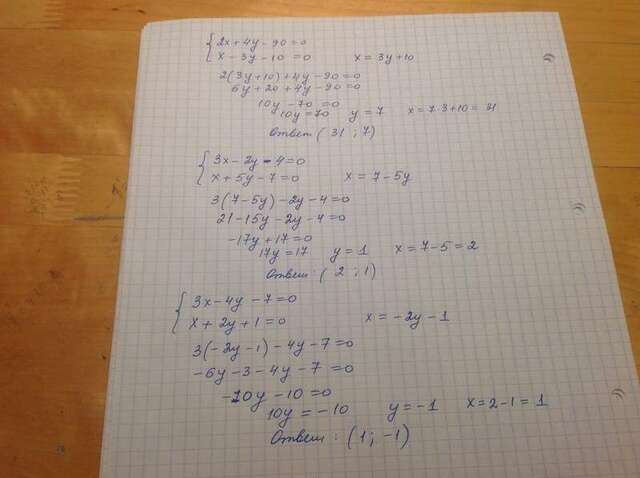 2x+4y-90=0
x-3y-10=0 x=3y+10
2(3y+10)+4y-90=0
6y+20+4y-90=0
10y-70=0
10y=70 y=7 x=7·3+10=31
Ответ (31;7)
3x-2y-4=0
x+5y-7=0 x=7-5y
3(7-5y)-2y-4=0
21-15y-2y-4=0
-17y+17=0
17y=17 y=1 x=7-5=2
Ответ: (2;1)
3x-4y-7=0
x+2y+1=0 x=-2y-1
3(-2y-1)-4y-7=0
-6y-3-4y-7=0
-10y-10=0
10y=-10 y=-1 x=2-1=1
Ответ: (1;-1)